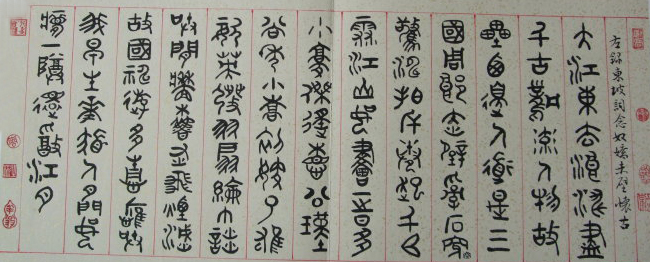 左錄東坡詞念奴嬌赤壁懷古
大江東去浪淘盡
千古風流人物故
壘西邊人道是三
國周郎赤壁亂石穿空
驚濤拍岸捲起千堆
雪江山如畫一時多
少豪傑遙想公瑾
當年小喬初嫁了雄
姿英發羽扇綸巾談
笑間檣櫓灰飛煙滅
故國神遊多情應笑
我早生華髮人間如
夢一尊還酹江月